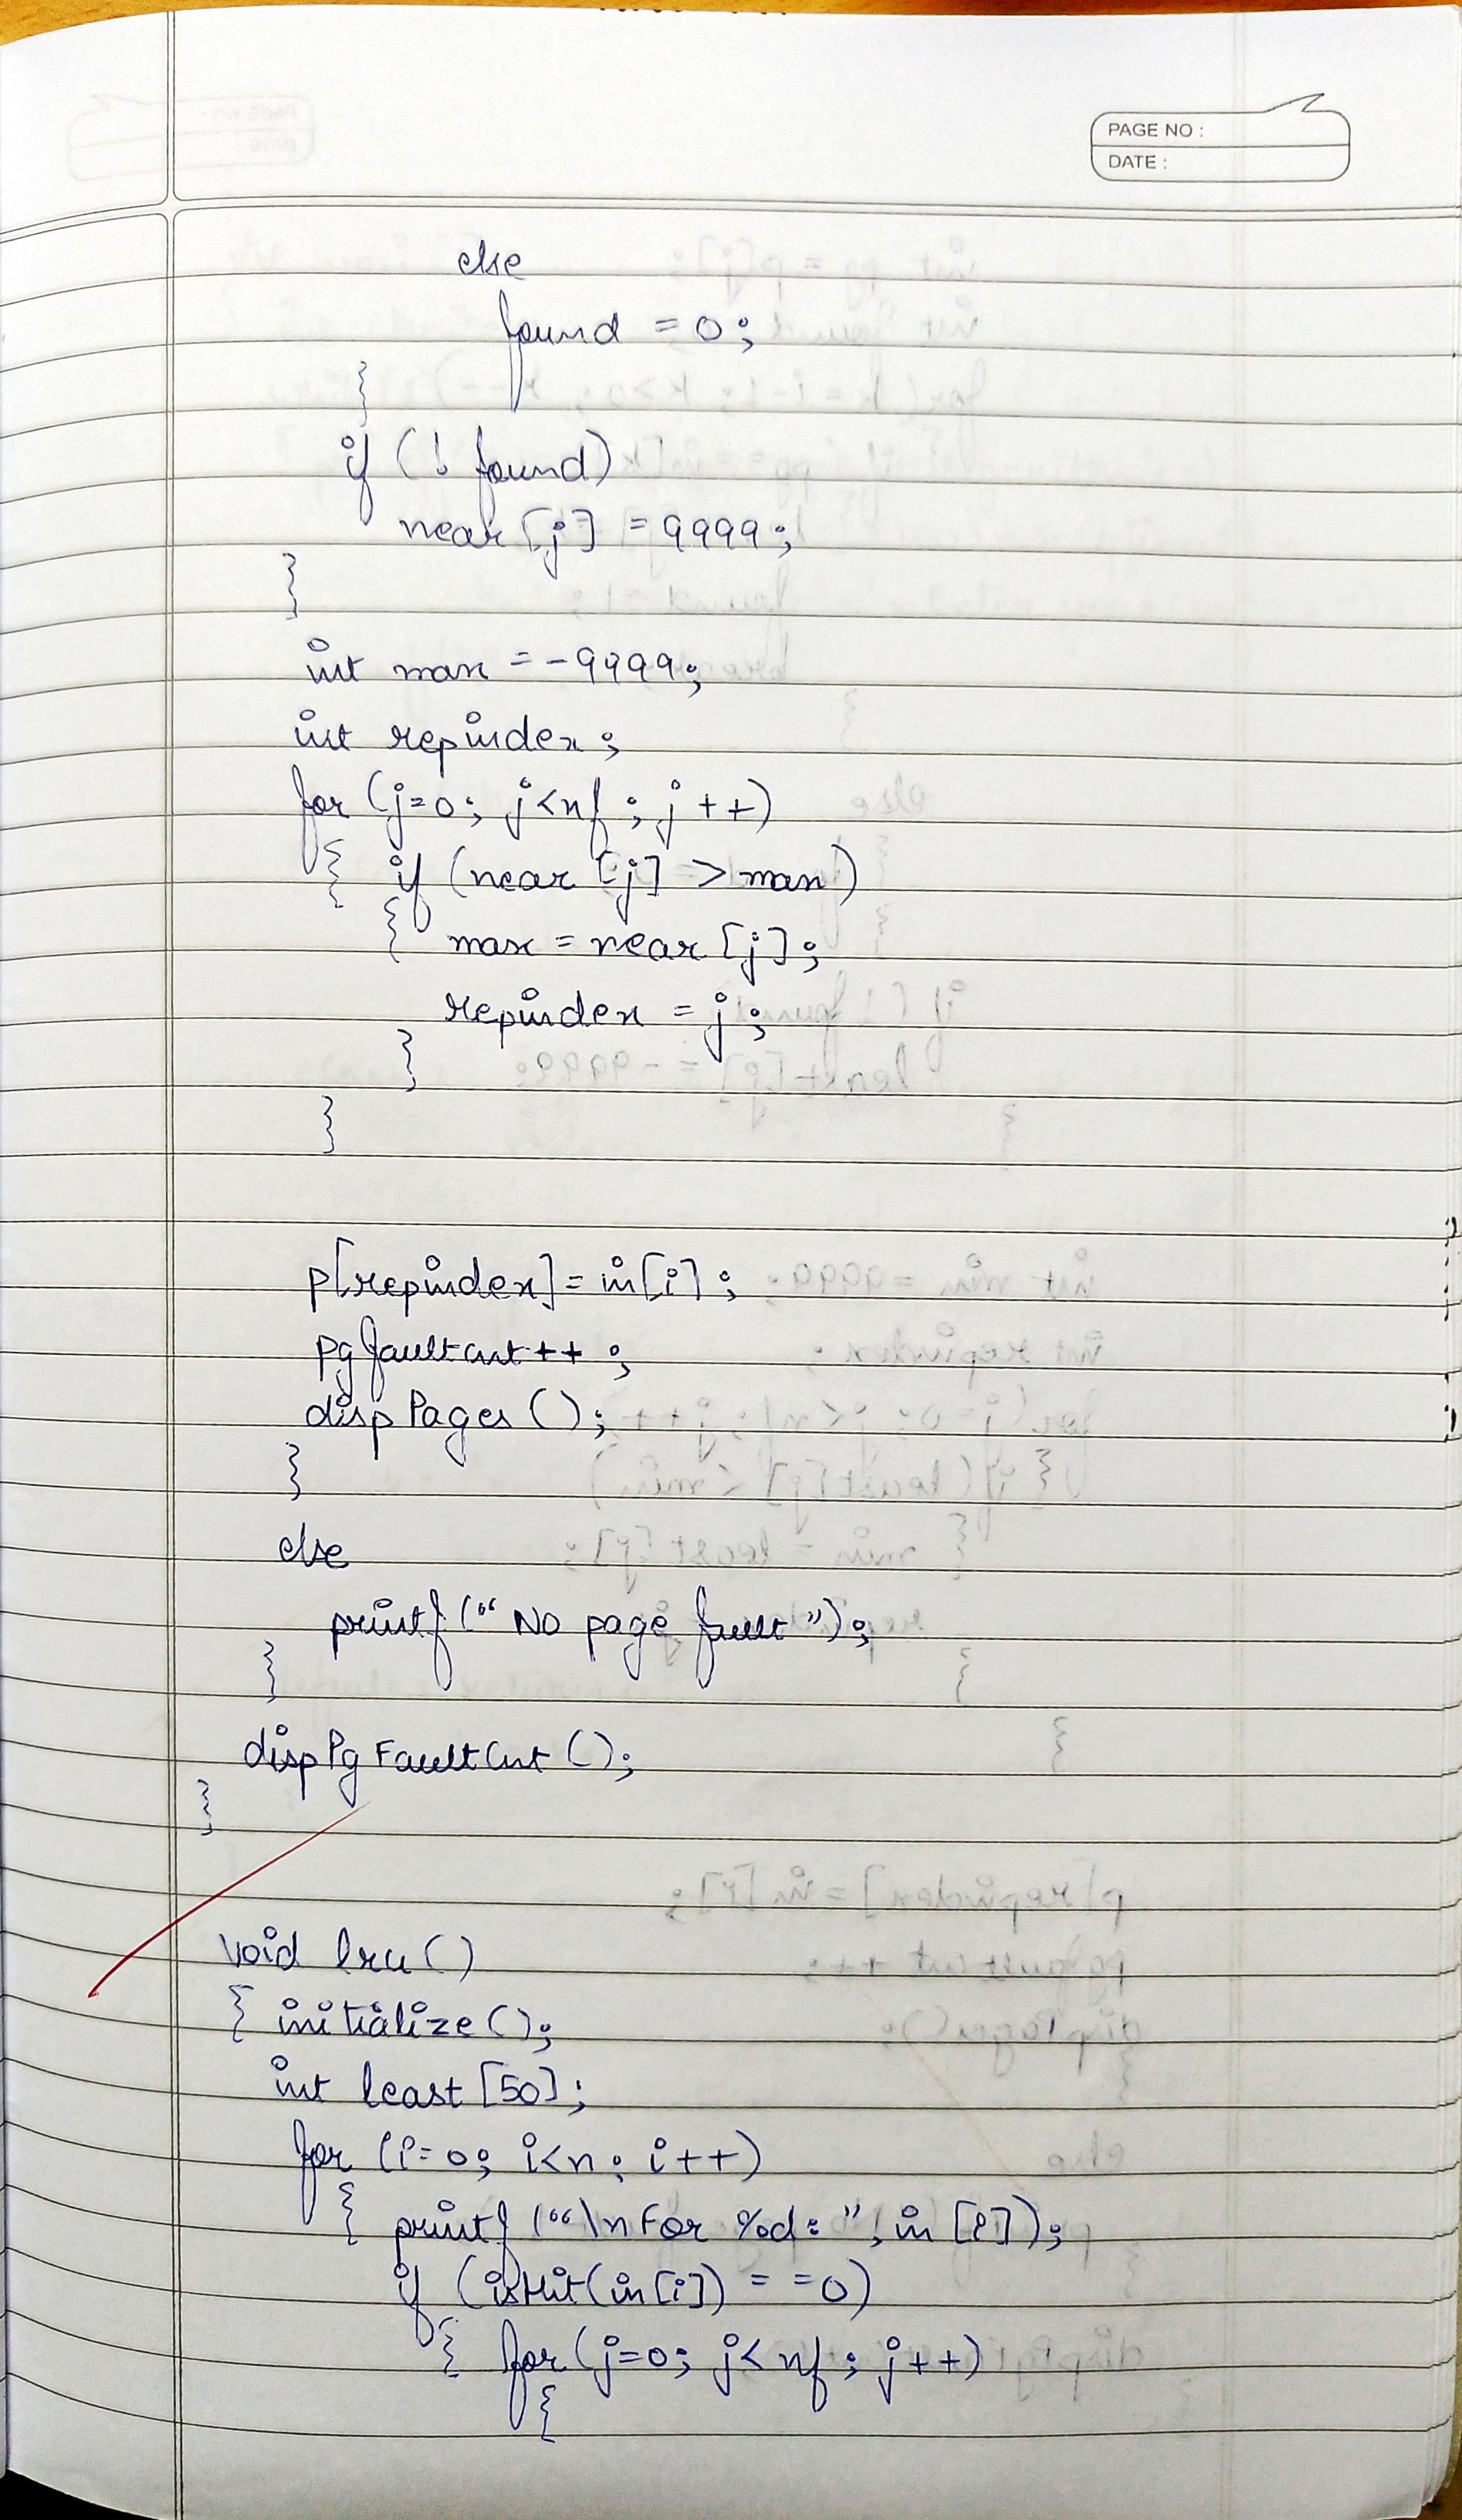 PAGE NO :
DATE :
else
found = 0;
}
if (! found)
near [j] = 9999;
}
int max = -9999;
int repindex;
for (j=0; j<nf; j++)
{ if (near [j] > max)
{ max = near [j];
repindex = j;
}
}
p[repindex] = in[i];
pgfaultcnt++;
dispPages ();
}
else
printf("No page fault");
}
dispPgFaultCnt ();
}
void lru ()
{ initialize ();
int least [50];
for (i=0; i<n; i++)
{ printf ("\nFor %d: ", in [i]);
if (isHit(in[i]) = =0)
{ for (j=0; j<nf; j++)
{